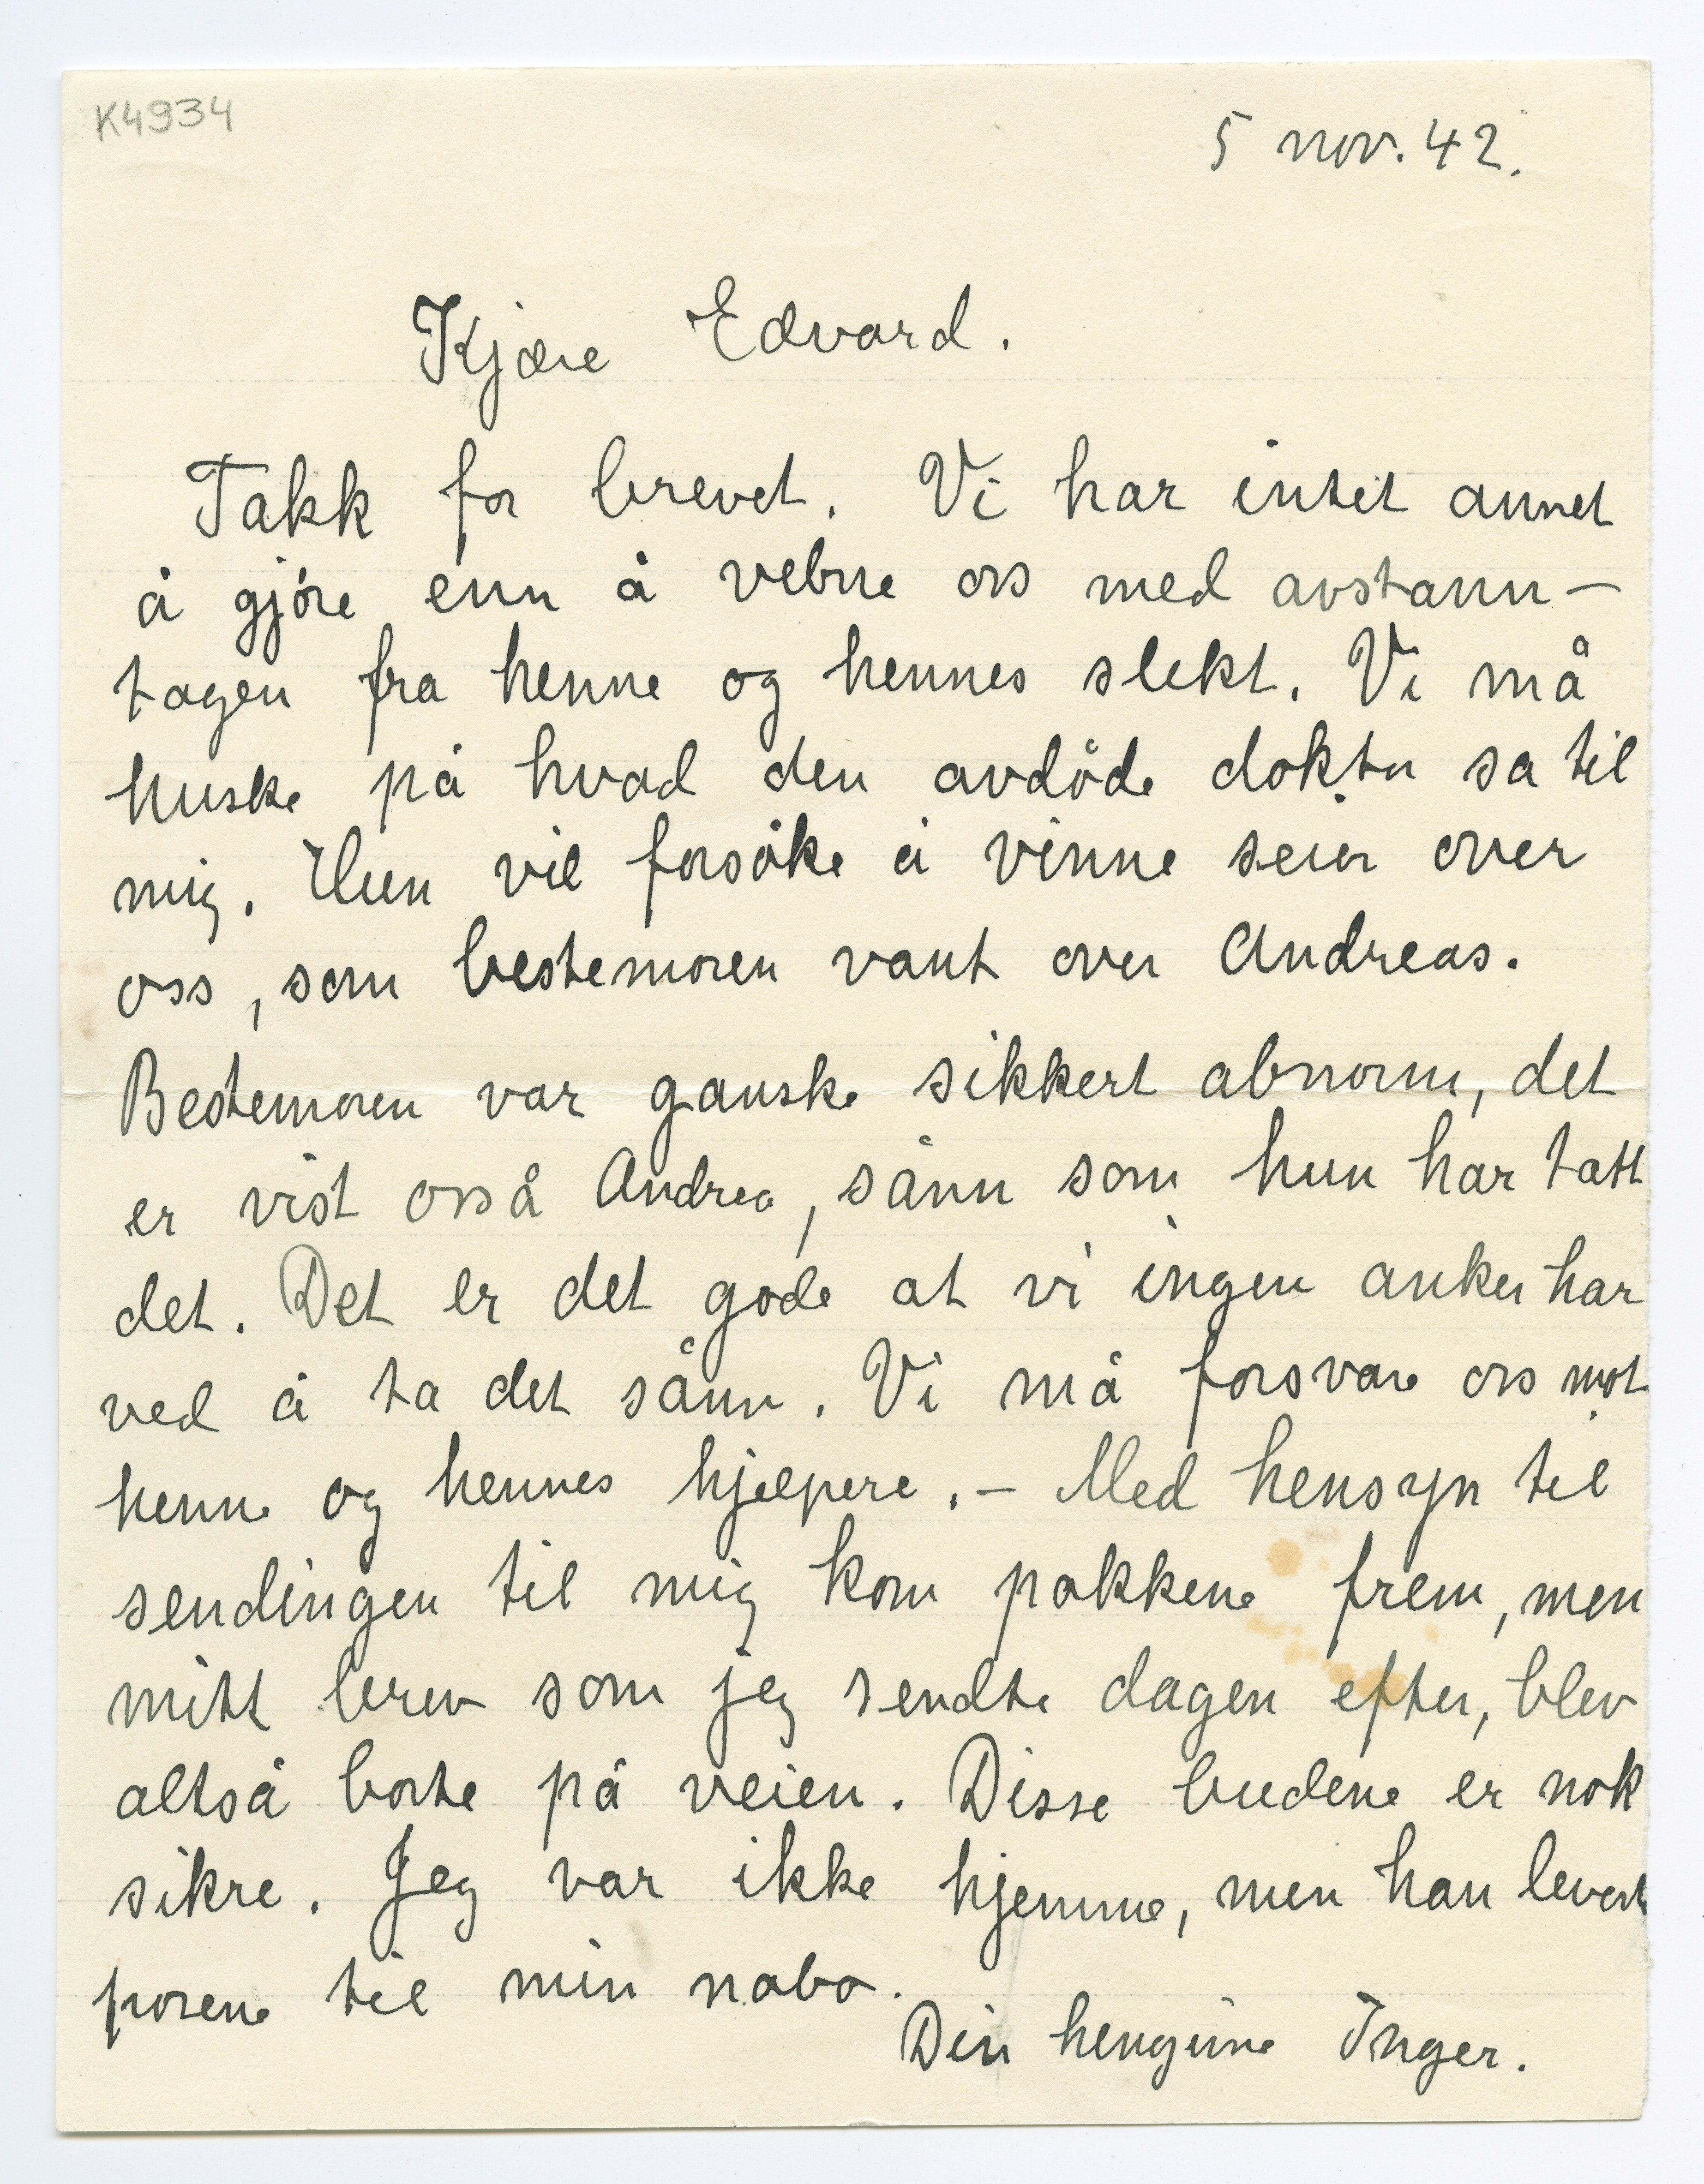 K4934
5 nov. 42.
Kjære Edvard.
Takk for brevet. Vi har intet annet
å gjøre enn å vebne oss med avstann-
tagen fra henne og hennes slekt. Vi må
huske på hvad den avdøde doktor sa til
mig. Hun vil forsøke å vinne seier over
oss, som bestemoren vant over Andreas.
Bestemoren var ganske sikkert abnorm, det
er vist osså Andrea, sånn som hun har tatt
det. Det er det gode at vi ingen anker har
ved å ta det sånn. Vi må forsvare oss mot
henne og hennes hjelpere. - Med hensyn til
sendingen til mig kom pakkene frem, men
mitt brev som jeg sendte dagen efter, blev
altså borte på veien. Disse budene er nok
sikre. Jeg var ikke hjemme, men han levert
posene til min nabo.
Din hengivne Inger.